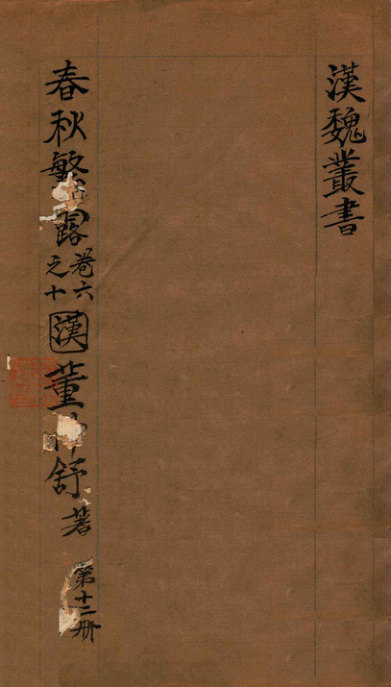 漢魏叢書
春秋繁露 卷六之十 漢 董仲舒 著 第十二册